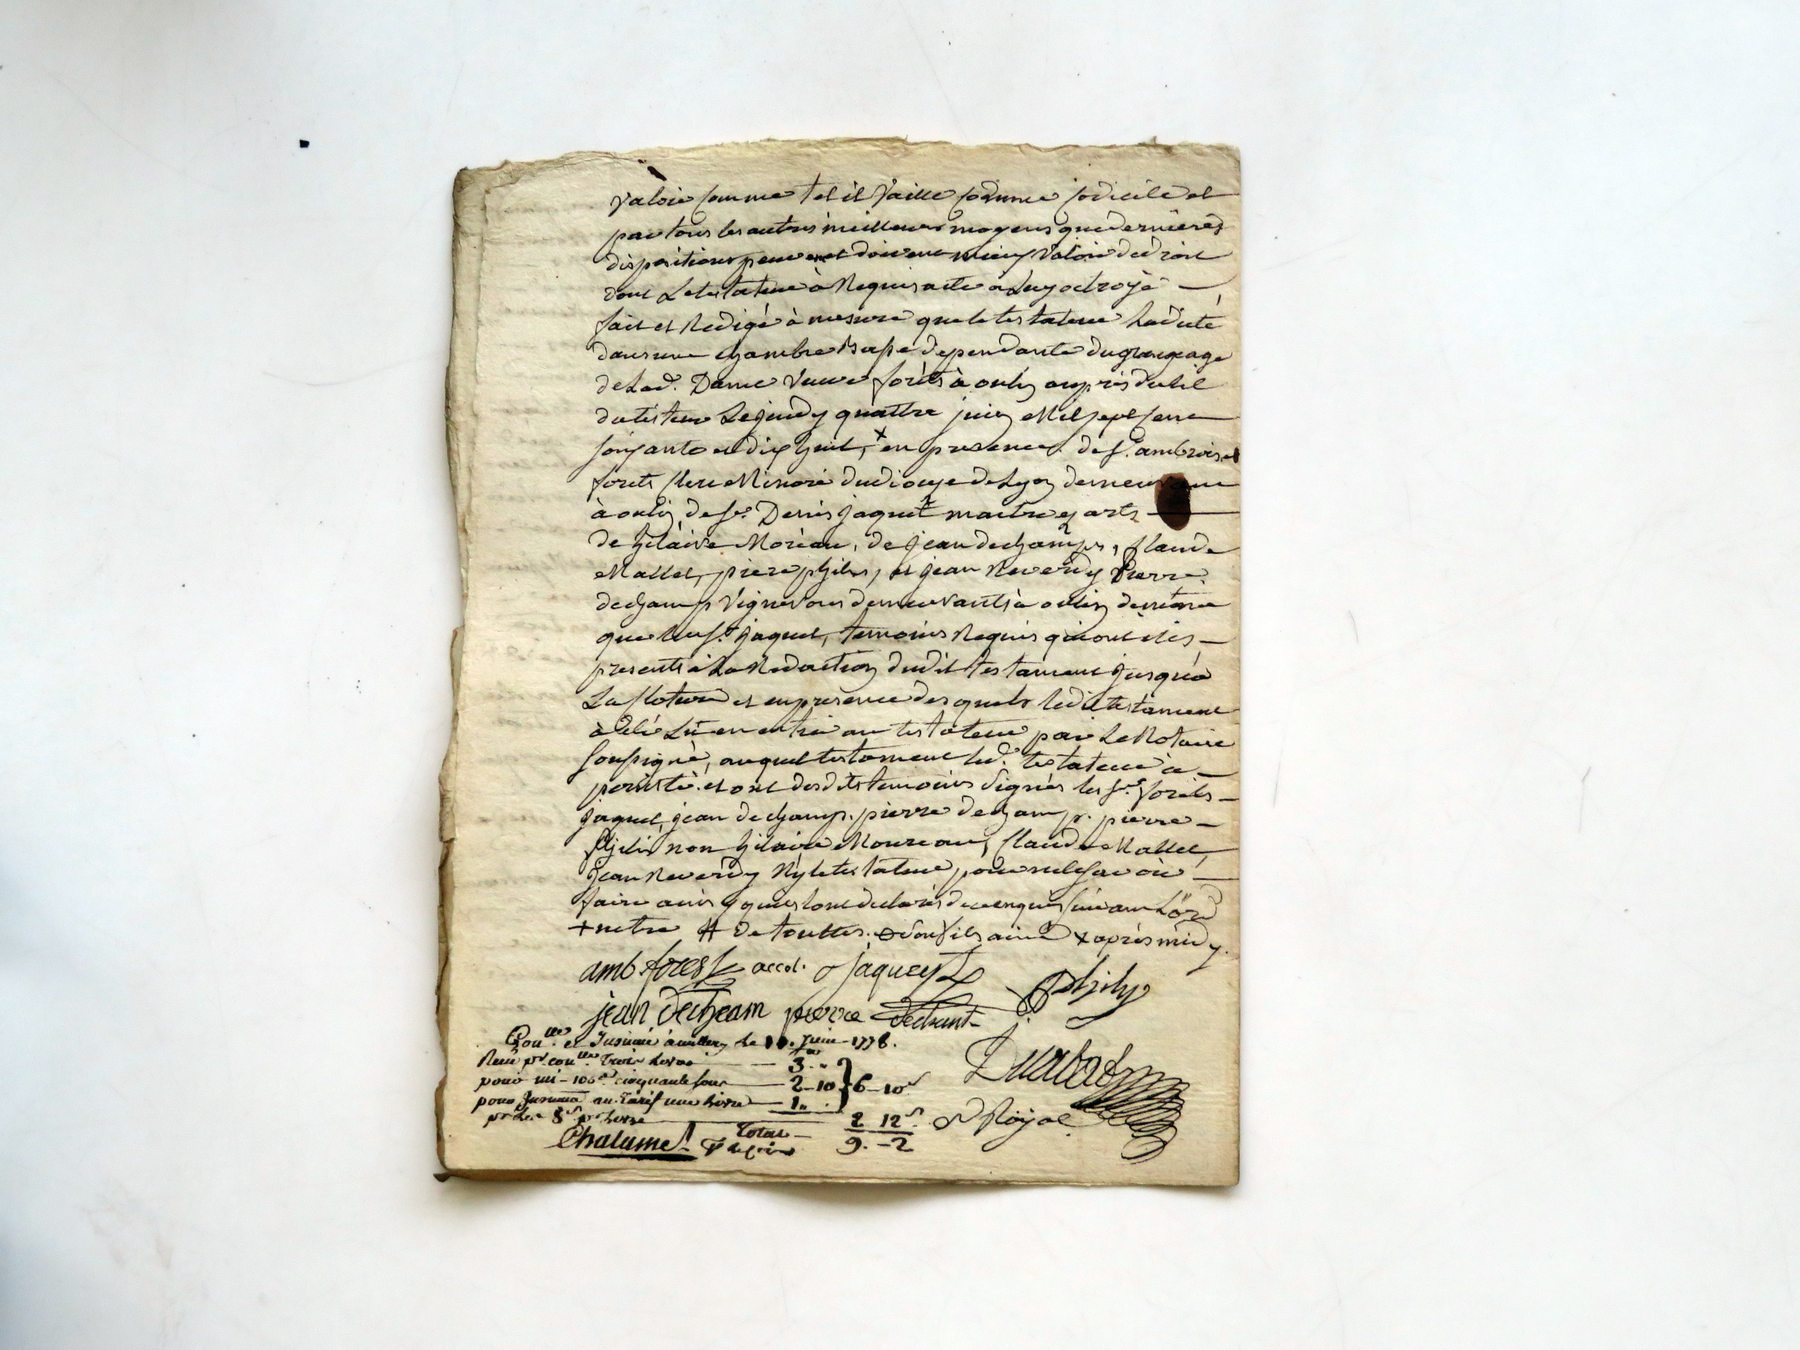 valoir comme tel il vaille comme codicile et
par tous les autres meilleurs moyens que dernieres
dispositions peuvent et doivent mieux valoir de droit
dont le testateur à requis acte à luy octroyé
fait et redigé à mesure que le testateur la dicté
dans une chambre basse dependante du
de lad. Dame veuve forêts à oulin auprès du lit
du testeur Le jeudy quattre juin Mil sept cent
soixante et dix huit, + en presence de sr. ambroise
forets clerc Minoré du dioceze de Lyon demeurant
à oulin, de sr. Denis jaquet maitre es arts
de hilaire Moreau, de jean dechamps, claude
Mallet, piere philis, et jean Reverdy Pierre
dechamp vignerons demeurants à oulin de même
que led sr. jaquet, temoins Requis qui ont étés
presents à La Redaction dudit testament jusqu'a
La cloture et en presence desquels ledit testament
à été Lû en entier au testateur par Le Notaire
soussigné, auquel testament led. testateur à
persisté. et ont desdits temoins signés les srs. forets
jaquet, jean dechamp. pierre dechamp. pierre
philis non hilaire Moureau, claude Mallet,
jean Reverdy Ny le testateur pour ne le savoir
faire ainsi qu'ils ont declarés de ce enquis
+ notre # de touttes. son fils ainé + après midy.
amb. forest accol. jaquet philis
jean decham pierre dechant
Conlle. et Insinué à le 10. Juin 1778.
Reçu pr conlle. trois livres 3. "
pour mi-100e. cinquante sous 2-10 6-10s
pour Insinuaon au Tarif une livre 1 "
pr les 8s. pr livre 2 12s.
Total 9. -2
Chalamel
Royal